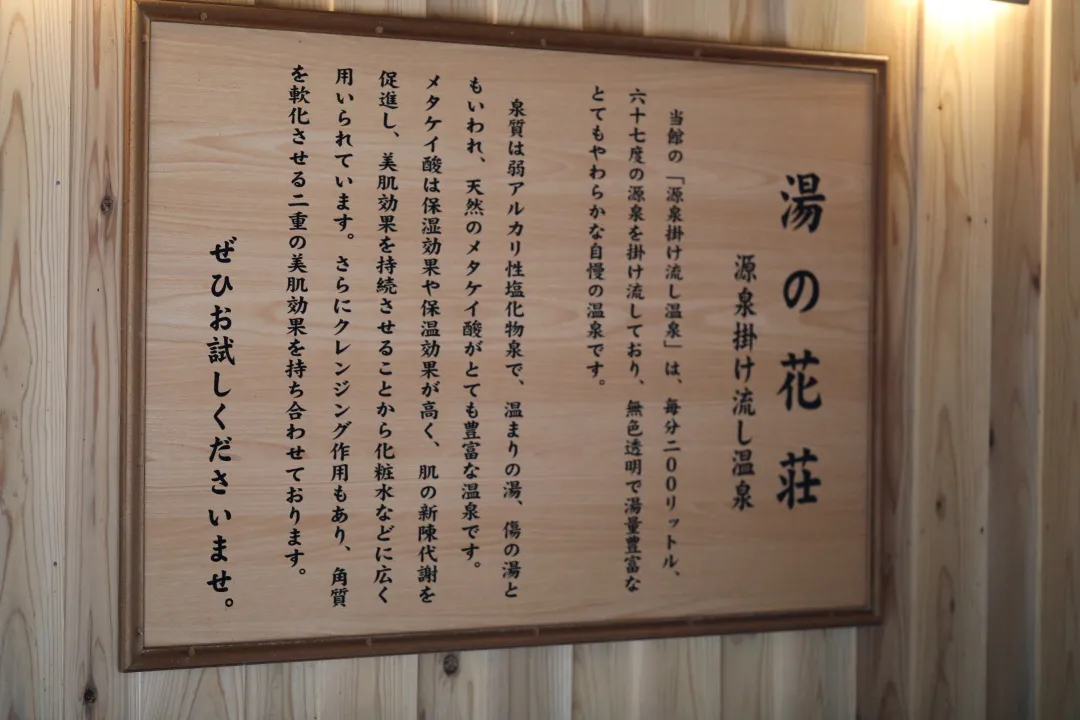 湯の花荘
源泉掛け流し温泉
当館の「源泉掛け流し温泉」は、毎分二〇〇リットル、
六十七度の源泉を掛け流しており、無色透明で湯量豊富な
とてもやわらかな自慢の温泉です。
泉質は弱アルカリ性塩化物泉で、温まりの湯、傷の湯と
もいわれ、天然のメタケイ酸がとても豊富な温泉です。
メタケイ酸は保湿効果や保温効果が高く、肌の新陳代謝を
促進し、美肌効果を持続させることから化粧水などに広く
用いられています。さらにクレンジング作用もあり、角質
を軟化させる二重の美肌効果を持ち合わせております。
ぜひお試しくださいませ。